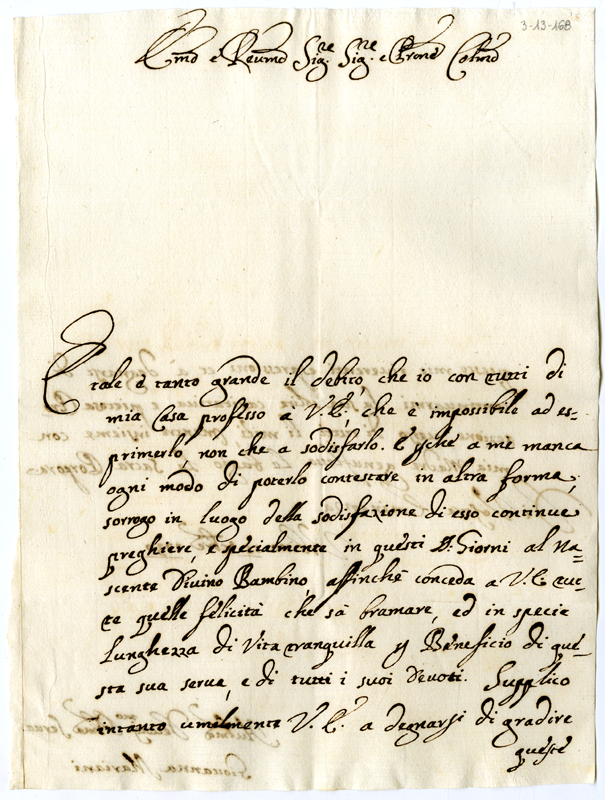 3-13-168
Emo e Reumo Sig.re Sig.re e Prone Colmo
E tale e tanto grande il debito, che io con tutti di
mia Casa professo a V.E., che è impossibile ad es-
primerlo, non che a sodisfarlo. E pche a me manca
ogni modo di poterlo contestare in altra forma,
sorrogo in luogo della sodisfazione di esso continue
preghiere, e specialmente in questi S. Giorni al Na=
scente Divino Bambino, affinchè conceda a V.E. tut=
te quelle felicità che sà bramare, ed in specie
lunghezza di Vita tranquilla p Beneficio di que=
sta sua serva, e di tutti i suoi Devoti. Supplico
intanto umilmente V.E. a degnarsi di gradire
queste
Giovanna Mariani